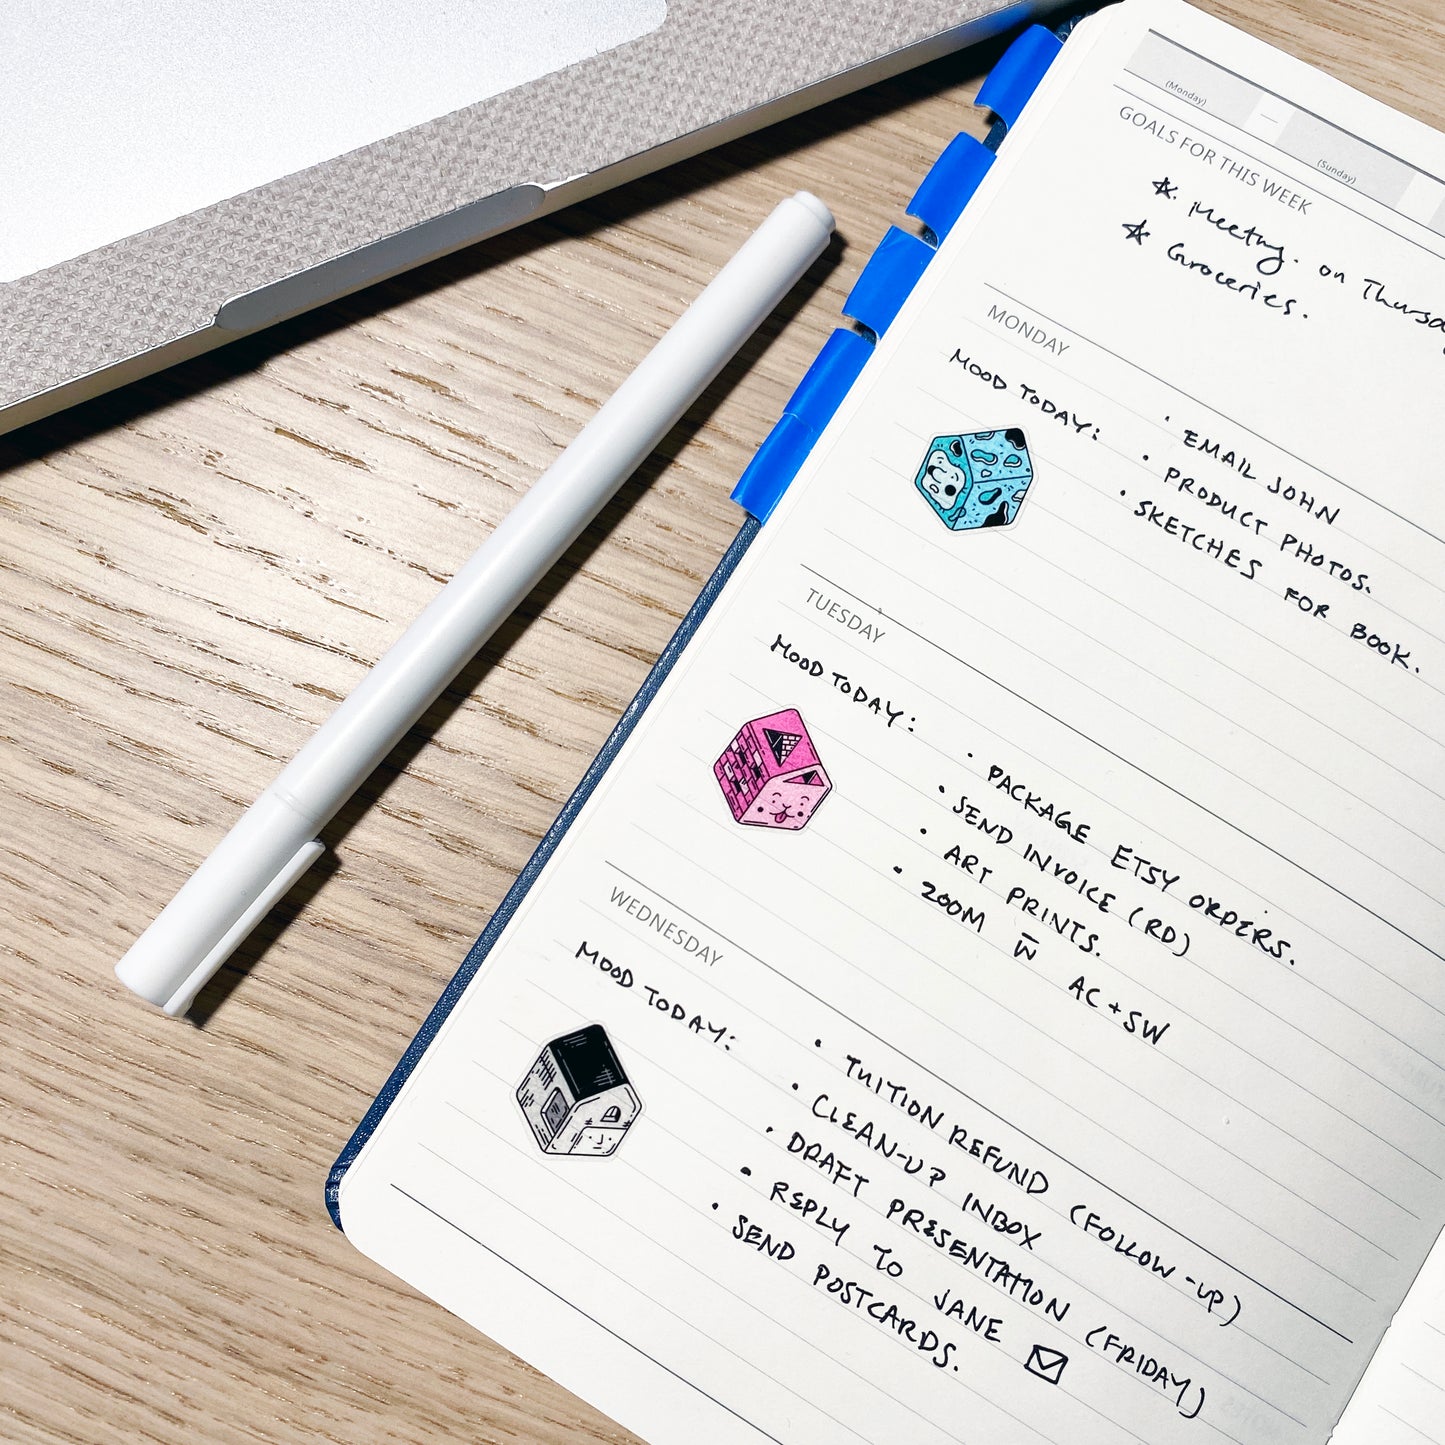 (Monday)
—
(Sunday)
GOALS FOR THIS WEEK
Meeting. on Thursda
Groceries.
MONDAY
MOOD TODAY:
• EMAIL JOHN
• PRODUCT PHOTOS.
• SKETCHES FOR BOOK.
TUESDAY
MOOD TODAY:
• PACKAGE ETSY ORDERS.
• SEND INVOICE (RD)
• ART PRINTS.
• ZOOM w̅ AC + SW
WEDNESDAY
MOOD TODAY:
• TUITION REFUND (FOLLOW-UP)
• CLEAN-UP INBOX
• DRAFT PRESENTATION (FRIDAY)
• REPLY TO JANE
• SEND POSTCARDS.